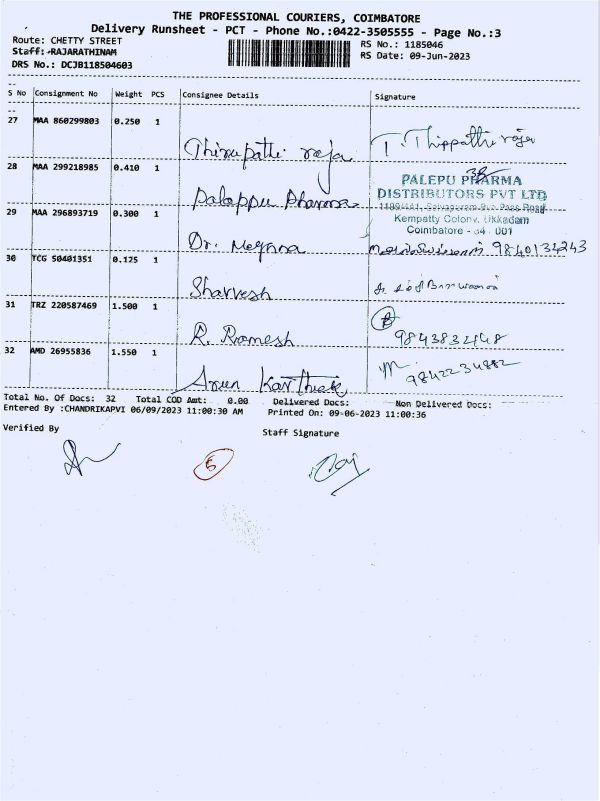 THE PROFESSIONAL COURIERS, COIMBATORE
Delivery Runsheet - PCT - Phone No.:0422-3505555 - Page No.:3
Route: CHETTY STREET
RS No.: 1185046
Staff:-RAJARATHINAM
RS Date: 09-Jun-2023
DRS No.: DCJB118504603
S No Consignment No Weight PCS Consignee Details Signature
27 MAA 860299803 0.250 1
Thirupathi raja T. Thippathi raja
28 MAA 299218985 0.410 1
Palappu Pharma
PALEPU PHARMA
DISTRIBUTORS PVT LTD
29 MAA 296893719 0.300 1
Kempatty Colony, Ukkadam
Coimbatore - 641 001
Dr. Megnna 9840134243
30 TCG 50401351 0.125 1
Sharvesh
31 TRZ 220587469 1.500 1
R. Ramesh 9843832448
32 AMD 26955836 1.550 1
9842234882
Arun Karthick
Total No. Of Docs: 32 Total COD Amt: 0.00 Delivered Docs: Non Delivered Docs:
Entered By :CHANDRIKAPVI 06/09/2023 11:00:30 AM Printed On: 09-06-2023 11:00:36
Verified By Staff Signature
5